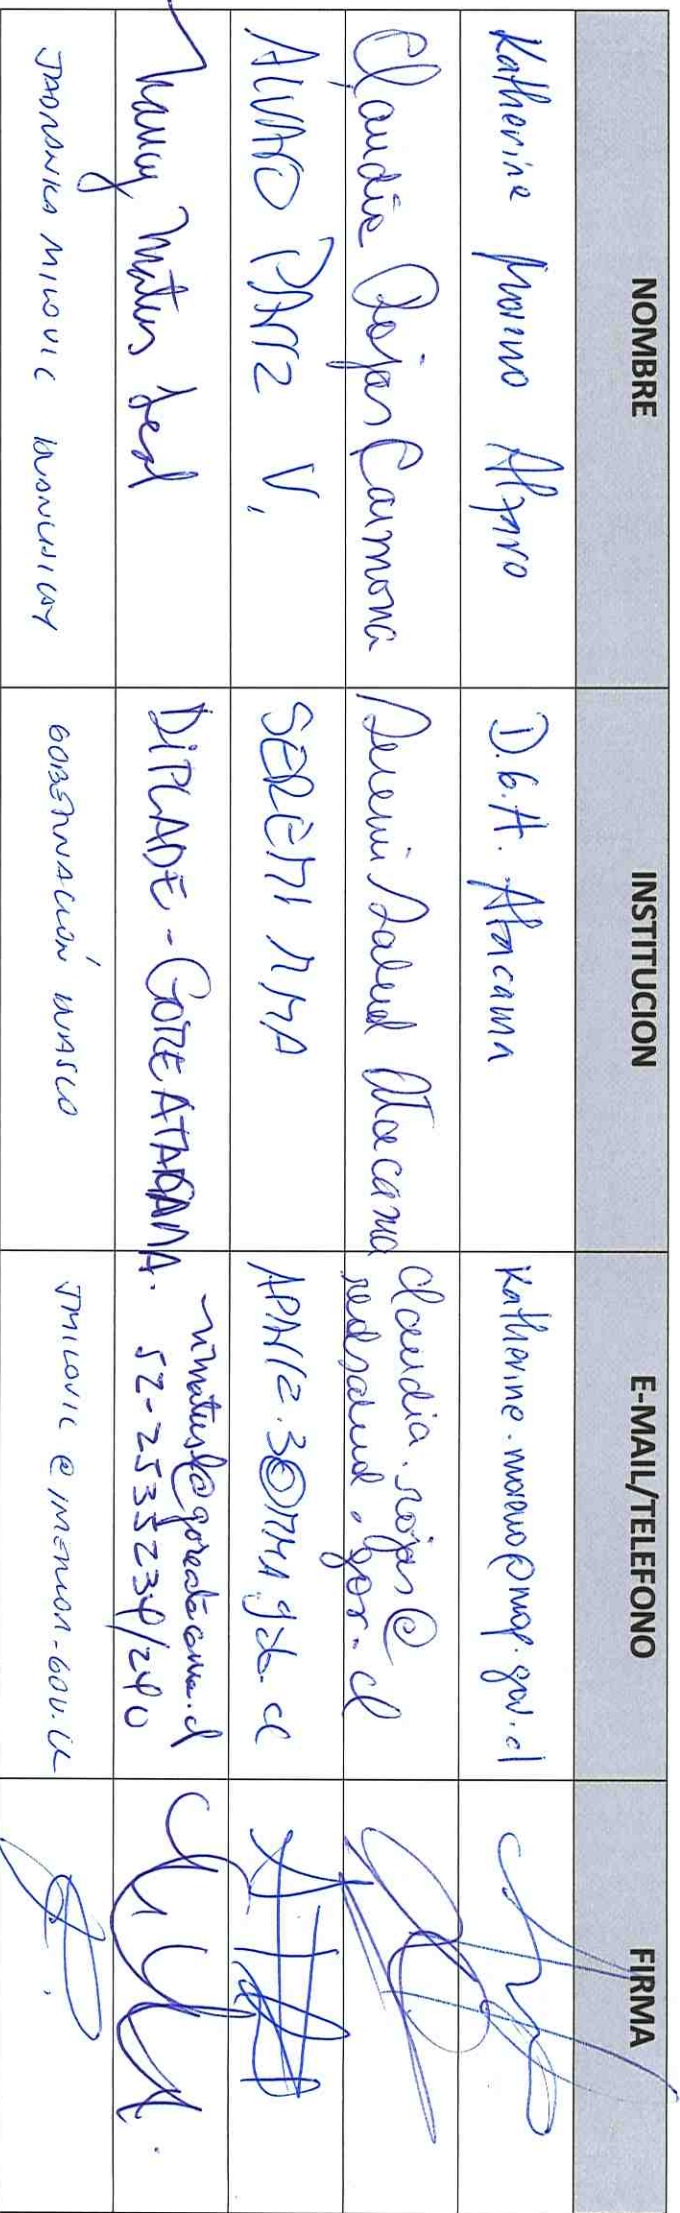 NOMBRE INSTITUCION E-MAIL/TELEFONO FIRMA
Katherine Moreno Alfaro D.G.A. Atacama Katherine.moreno@mop.gov.cl
Claudia Rojas Carmona Seremi Salud Atacama claudia.rojas@
redsalud.gov.cl
ALVARO PARRA V. SEREMI MMA
Nancy Matus Leal DIPLADE-GORE ATACAMA. nmatusl@goreatacama.cl
52-2535234/240
MILOVIC GOBERNACIÓN HUASCO